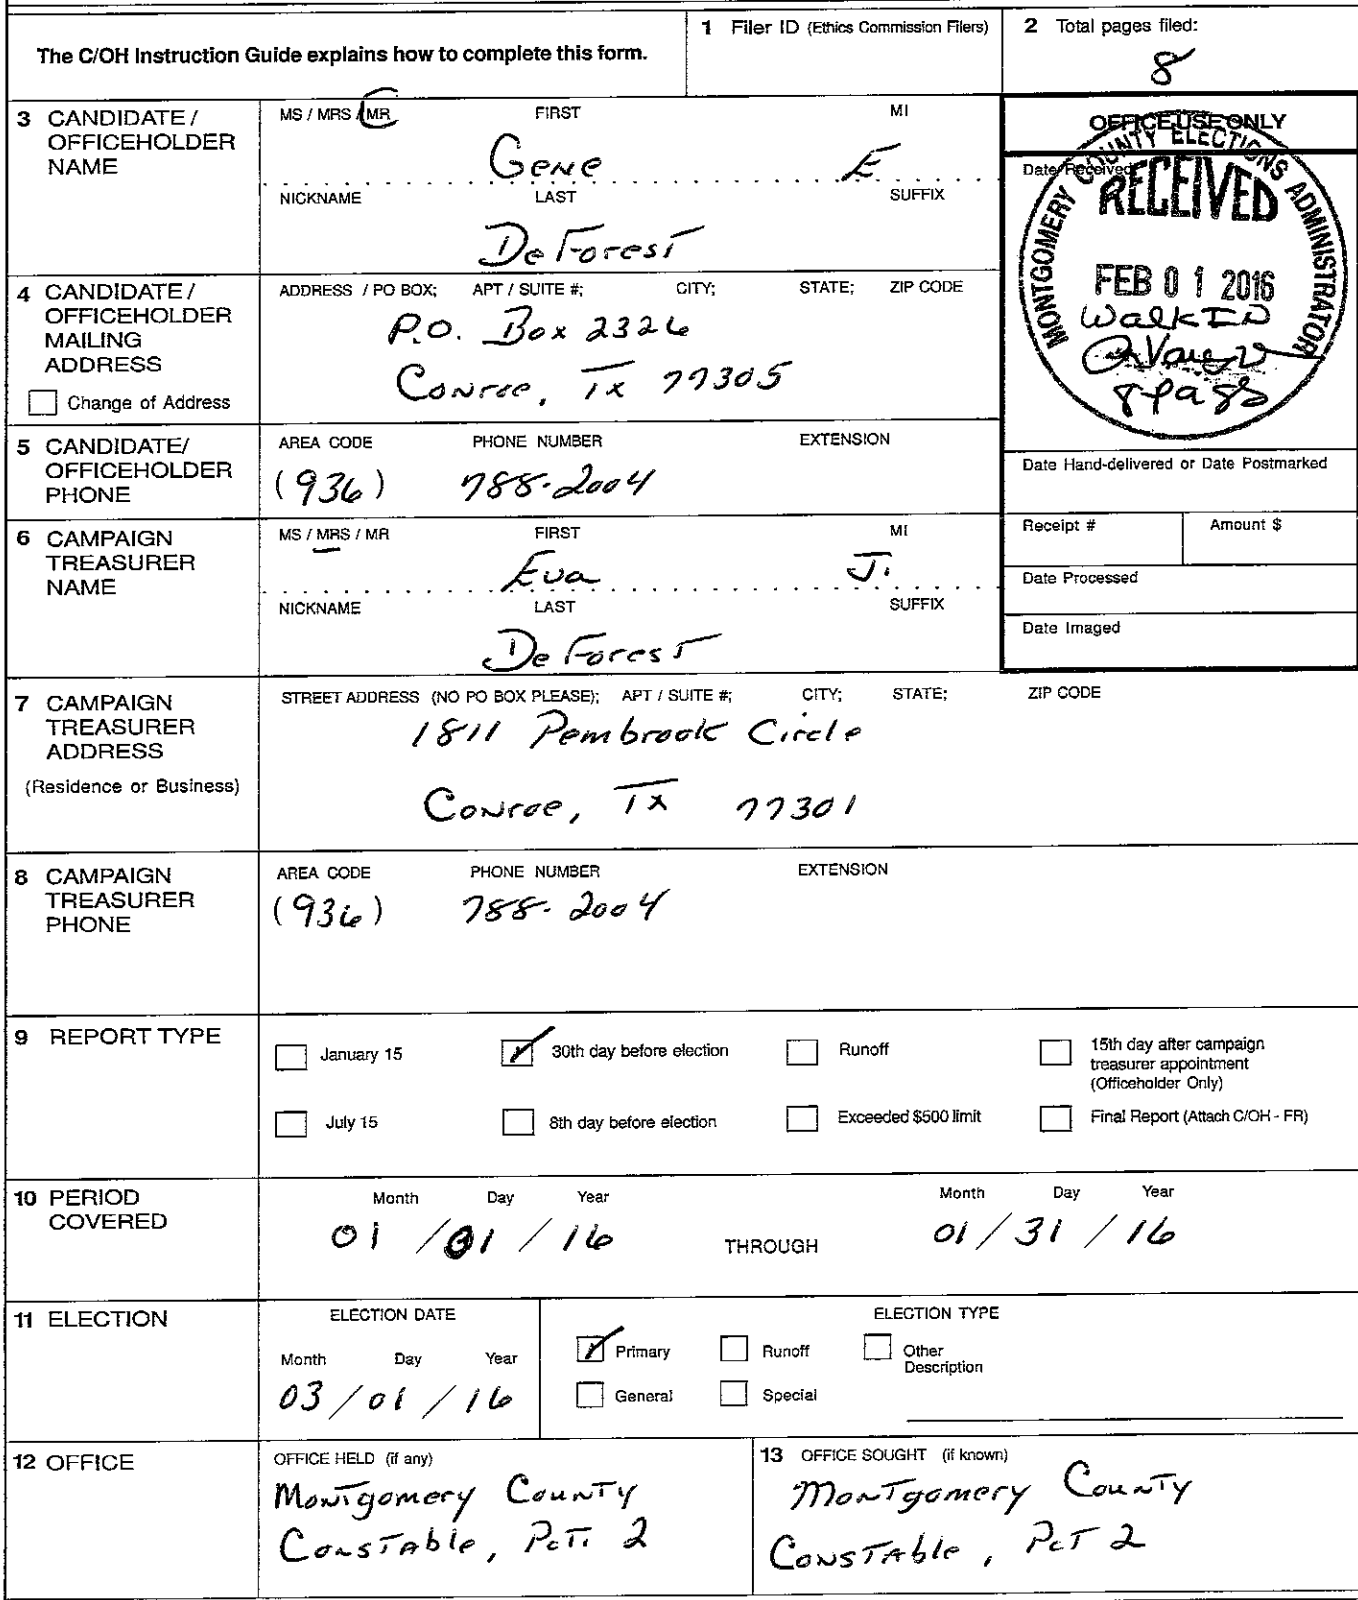 The C/OH Instruction Guide explains how to complete this form.
1 Filer ID (Ethics Commission Filers)
2 Total pages filed:
8
3 CANDIDATE / OFFICEHOLDER NAME
MS / MRS / MR FIRST MI
Gene E
NICKNAME LAST SUFFIX
DeForest
OFFICE USE ONLY
Date Received
MONTGOMERY COUNTY ELECTIONS ADMINISTRATOR
RECEIVED
FEB 01 2016
Walk IN
8 pags
4 CANDIDATE / OFFICEHOLDER MAILING ADDRESS
Change of Address
ADDRESS / PO BOX; APT / SUITE #; CITY; STATE; ZIP CODE
P.O. Box 2326
Conroe, Tx 77305
5 CANDIDATE/ OFFICEHOLDER PHONE
AREA CODE PHONE NUMBER EXTENSION
(936) 788-2004
Date Hand-delivered or Date Postmarked
Receipt # Amount $
Date Processed
Date Imaged
6 CAMPAIGN TREASURER NAME
MS / MRS / MR FIRST MI
Eva J.
NICKNAME LAST SUFFIX
DeForest
7 CAMPAIGN TREASURER ADDRESS
(Residence or Business)
STREET ADDRESS (NO PO BOX PLEASE); APT / SUITE #; CITY; STATE; ZIP CODE
1811 Pembrook Circle
Conroe, Tx 77301
8 CAMPAIGN TREASURER PHONE
AREA CODE PHONE NUMBER EXTENSION
(936) 788-2004
9 REPORT TYPE
January 15 30th day before election Runoff 15th day after campaign treasurer appointment (Officeholder Only)
July 15 8th day before election Exceeded $500 limit Final Report (Attach C/OH - FR)
10 PERIOD COVERED
Month Day Year Month Day Year
01 / 01 / 16 THROUGH 01 / 31 / 16
11 ELECTION
ELECTION DATE
Month Day Year
03 / 01 / 16
ELECTION TYPE
Primary Runoff Other Description
General Special
12 OFFICE
OFFICE HELD (if any)
Montgomery County
Constable, Pct. 2
13 OFFICE SOUGHT (if known)
Montgomery County
Constable, Pct 2